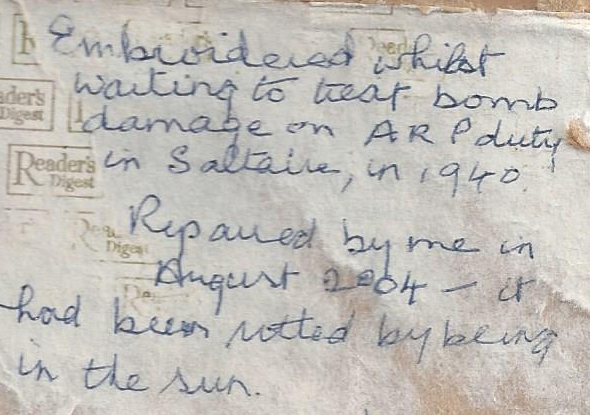 Embroidered whilst
waiting to treat bomb
damage on ARP duty
in Saltaire, in 1940.
Repaired by me in
August 2004 – it
had been rotted by being
in the sun.
Reader's
Digest
Reader's
Digest